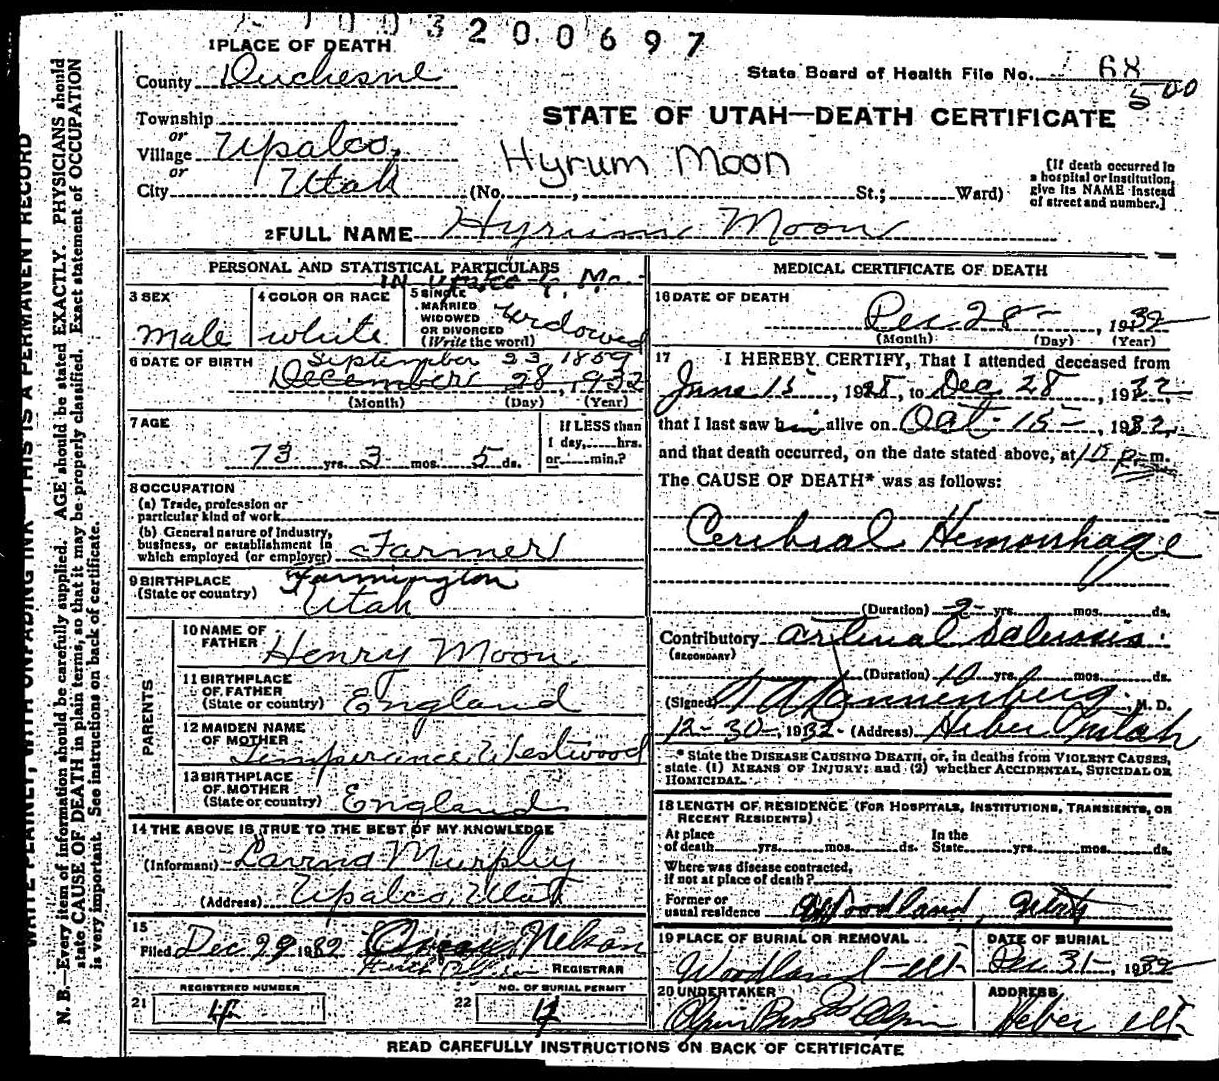 1003200697
1 PLACE OF DEATH
County Duchesne
State Board of Health File No. 68
500
STATE OF UTAH—DEATH CERTIFICATE
Township
or
Village Upalco,
or
City Utah
Hyrum Moon
(No. , St.; Ward)
[If death occurred in a hospital or institution, give its NAME instead of street and number.]
2 FULL NAME Hyrum Moon
PERSONAL AND STATISTICAL PARTICULARS
3 SEX
Male
4 COLOR OR RACE
white
5 SINGLE
MARRIED
WIDOWED
OR DIVORCED
(Write the word)
widowed
6 DATE OF BIRTH
September 23 1859
December 28, 1932
(Month) (Day) (Year)
7 AGE
73 yrs. 3 mos. 5 ds.
If LESS than
1 day, hrs.
or min.?
8 OCCUPATION
(a) Trade, profession or
particular kind of work
(b) General nature of industry,
business, or establishment in
which employed (or employer) Farmer
9 BIRTHPLACE
(State or country)
Farmington
Utah
PARENTS
10 NAME OF
FATHER Henry Moon
11 BIRTHPLACE
OF FATHER
(State or country) England
12 MAIDEN NAME
OF MOTHER
Temperance Westwood
13 BIRTHPLACE
OF MOTHER
(State or country) England
14 THE ABOVE IS TRUE TO THE BEST OF MY KNOWLEDGE
(Informant) Lavina Murphy
(Address) Upalco, Utah
15
Filed Dec 29 1932 Nelson
REGISTRAR
REGISTERED NUMBER
21 4
NO. OF BURIAL PERMIT
22 4
MEDICAL CERTIFICATE OF DEATH
16 DATE OF DEATH
Dec 28 , 1932
(Month) (Day) (Year)
17 I HEREBY CERTIFY, That I attended deceased from
June 15 , 1928, to Dec 28 , 1932,
that I last saw him alive on Oct 15 , 1932,
and that death occurred, on the date stated above, at P. m.
The CAUSE OF DEATH* was as follows:
Cerebral Hemorrhage
(Duration) 2 yrs. mos. ds.
Contributory arterial sclerosis
(SECONDARY)
(Duration) 10 yrs. mos. ds.
(Signed) Dannenberg, M. D.
12-30-, 1932 (Address) Heber Utah
* State the DISEASE CAUSING DEATH, or, in deaths from VIOLENT CAUSES,
state (1) MEANS OF INJURY; and (2) whether ACCIDENTAL, SUICIDAL OR
HOMICIDAL.
18 LENGTH OF RESIDENCE (FOR HOSPITALS, INSTITUTIONS, TRANSIENTS, OR
RECENT RESIDENTS)
At place
of death yrs. mos. ds.
In the
State yrs. mos. ds.
Where was disease contracted,
if not at place of death?
Former or
usual residence Woodland, Utah
19 PLACE OF BURIAL OR REMOVAL
Woodland Ut
DATE OF BURIAL
Dec 31 , 1932
20 UNDERTAKER
Olpin Bros Olpin
ADDRESS
Heber Ut
READ CAREFULLY INSTRUCTIONS ON BACK OF CERTIFICATE
WRITE PLAINLY, WITH UNFADING INK—THIS IS A PERMANENT RECORD
N. B. Every item of information should be carefully supplied. AGE should be stated EXACTLY. PHYSICIANS should
state CAUSE OF DEATH in plain terms, so that it may be properly classified. Exact statement of OCCUPATION
is very important. See instructions on back of certificate.